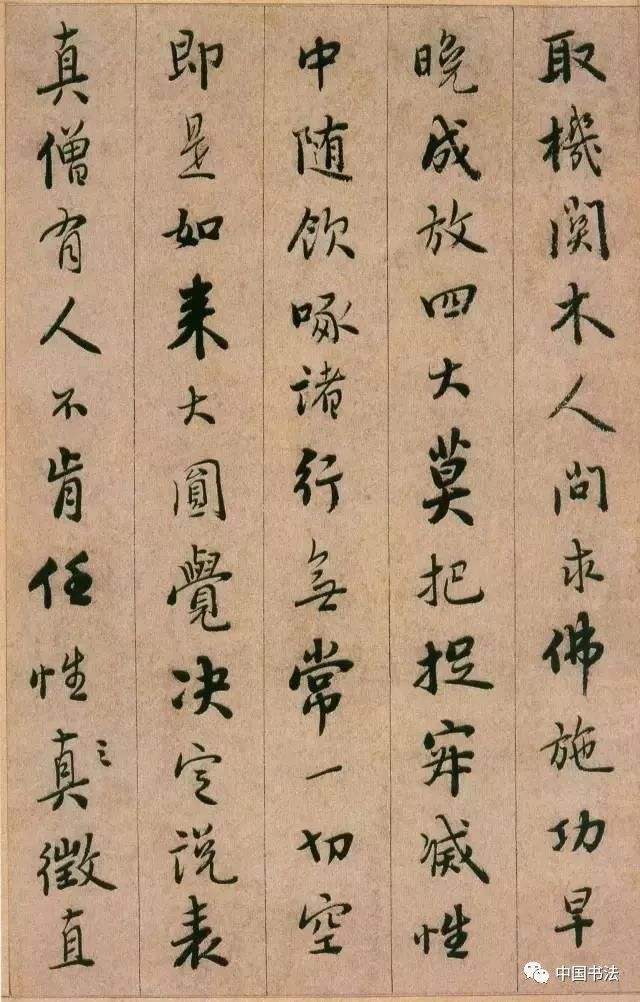 取機関木人問求佛施功早
晚成放四大莫把捉寂滅性
中随飲啄諸行無常一切空
即是如来大圓覺决定説表
真僧有人不肯任性真徵直
中国书法